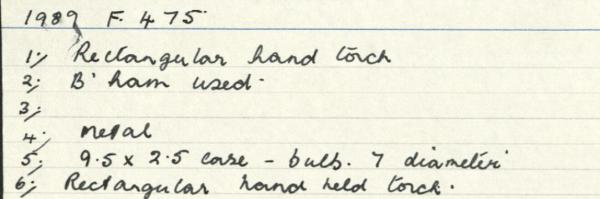 1989 F. 475.
1; Rectangular hand torch
2; B'ham used.
3;
4; metal
5; 9.5 x 2.5 case - bulb. 7 diameter
6; Rectangular hand held torch.